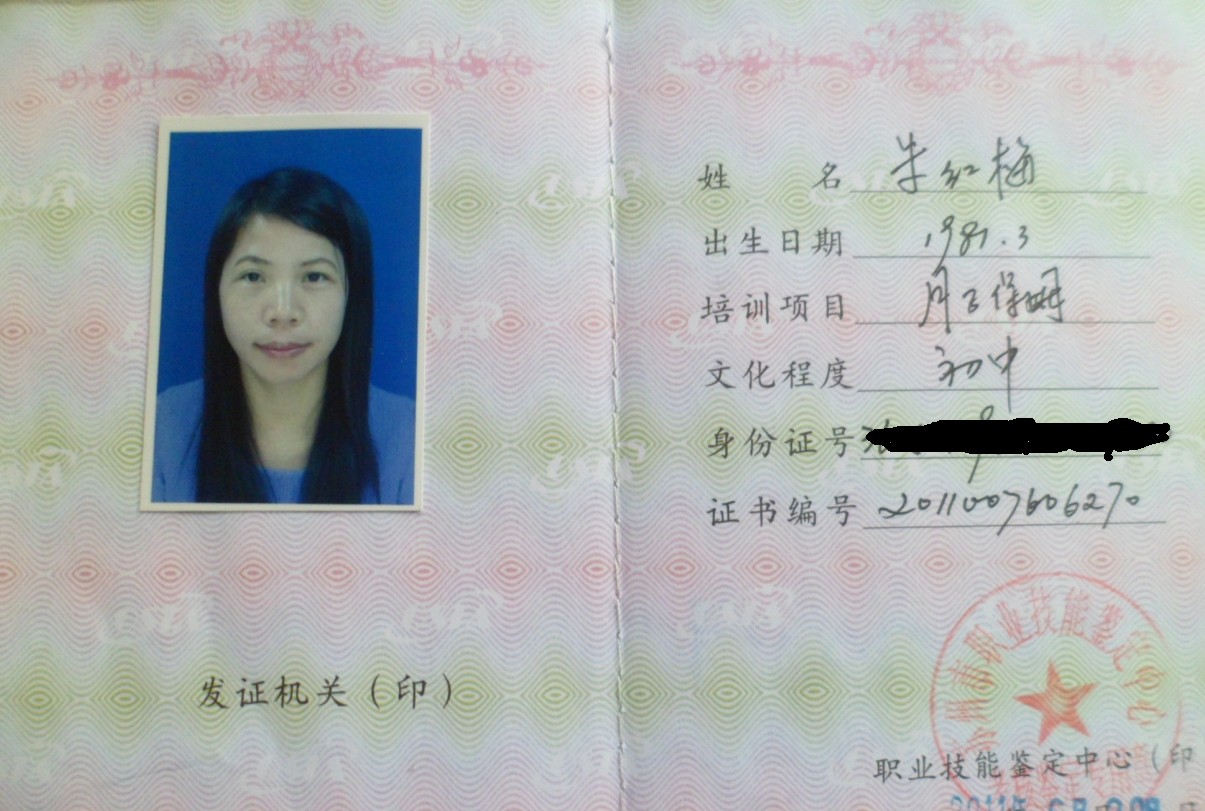 姓 名 朱红梅
出生日期 1981.3
培训项目 月子保姆
文化程度 初中
身份证号
证书编号 2011007606270
发证机关（印）
市职业技能鉴定中心
职业技能鉴定中心（印
2011年